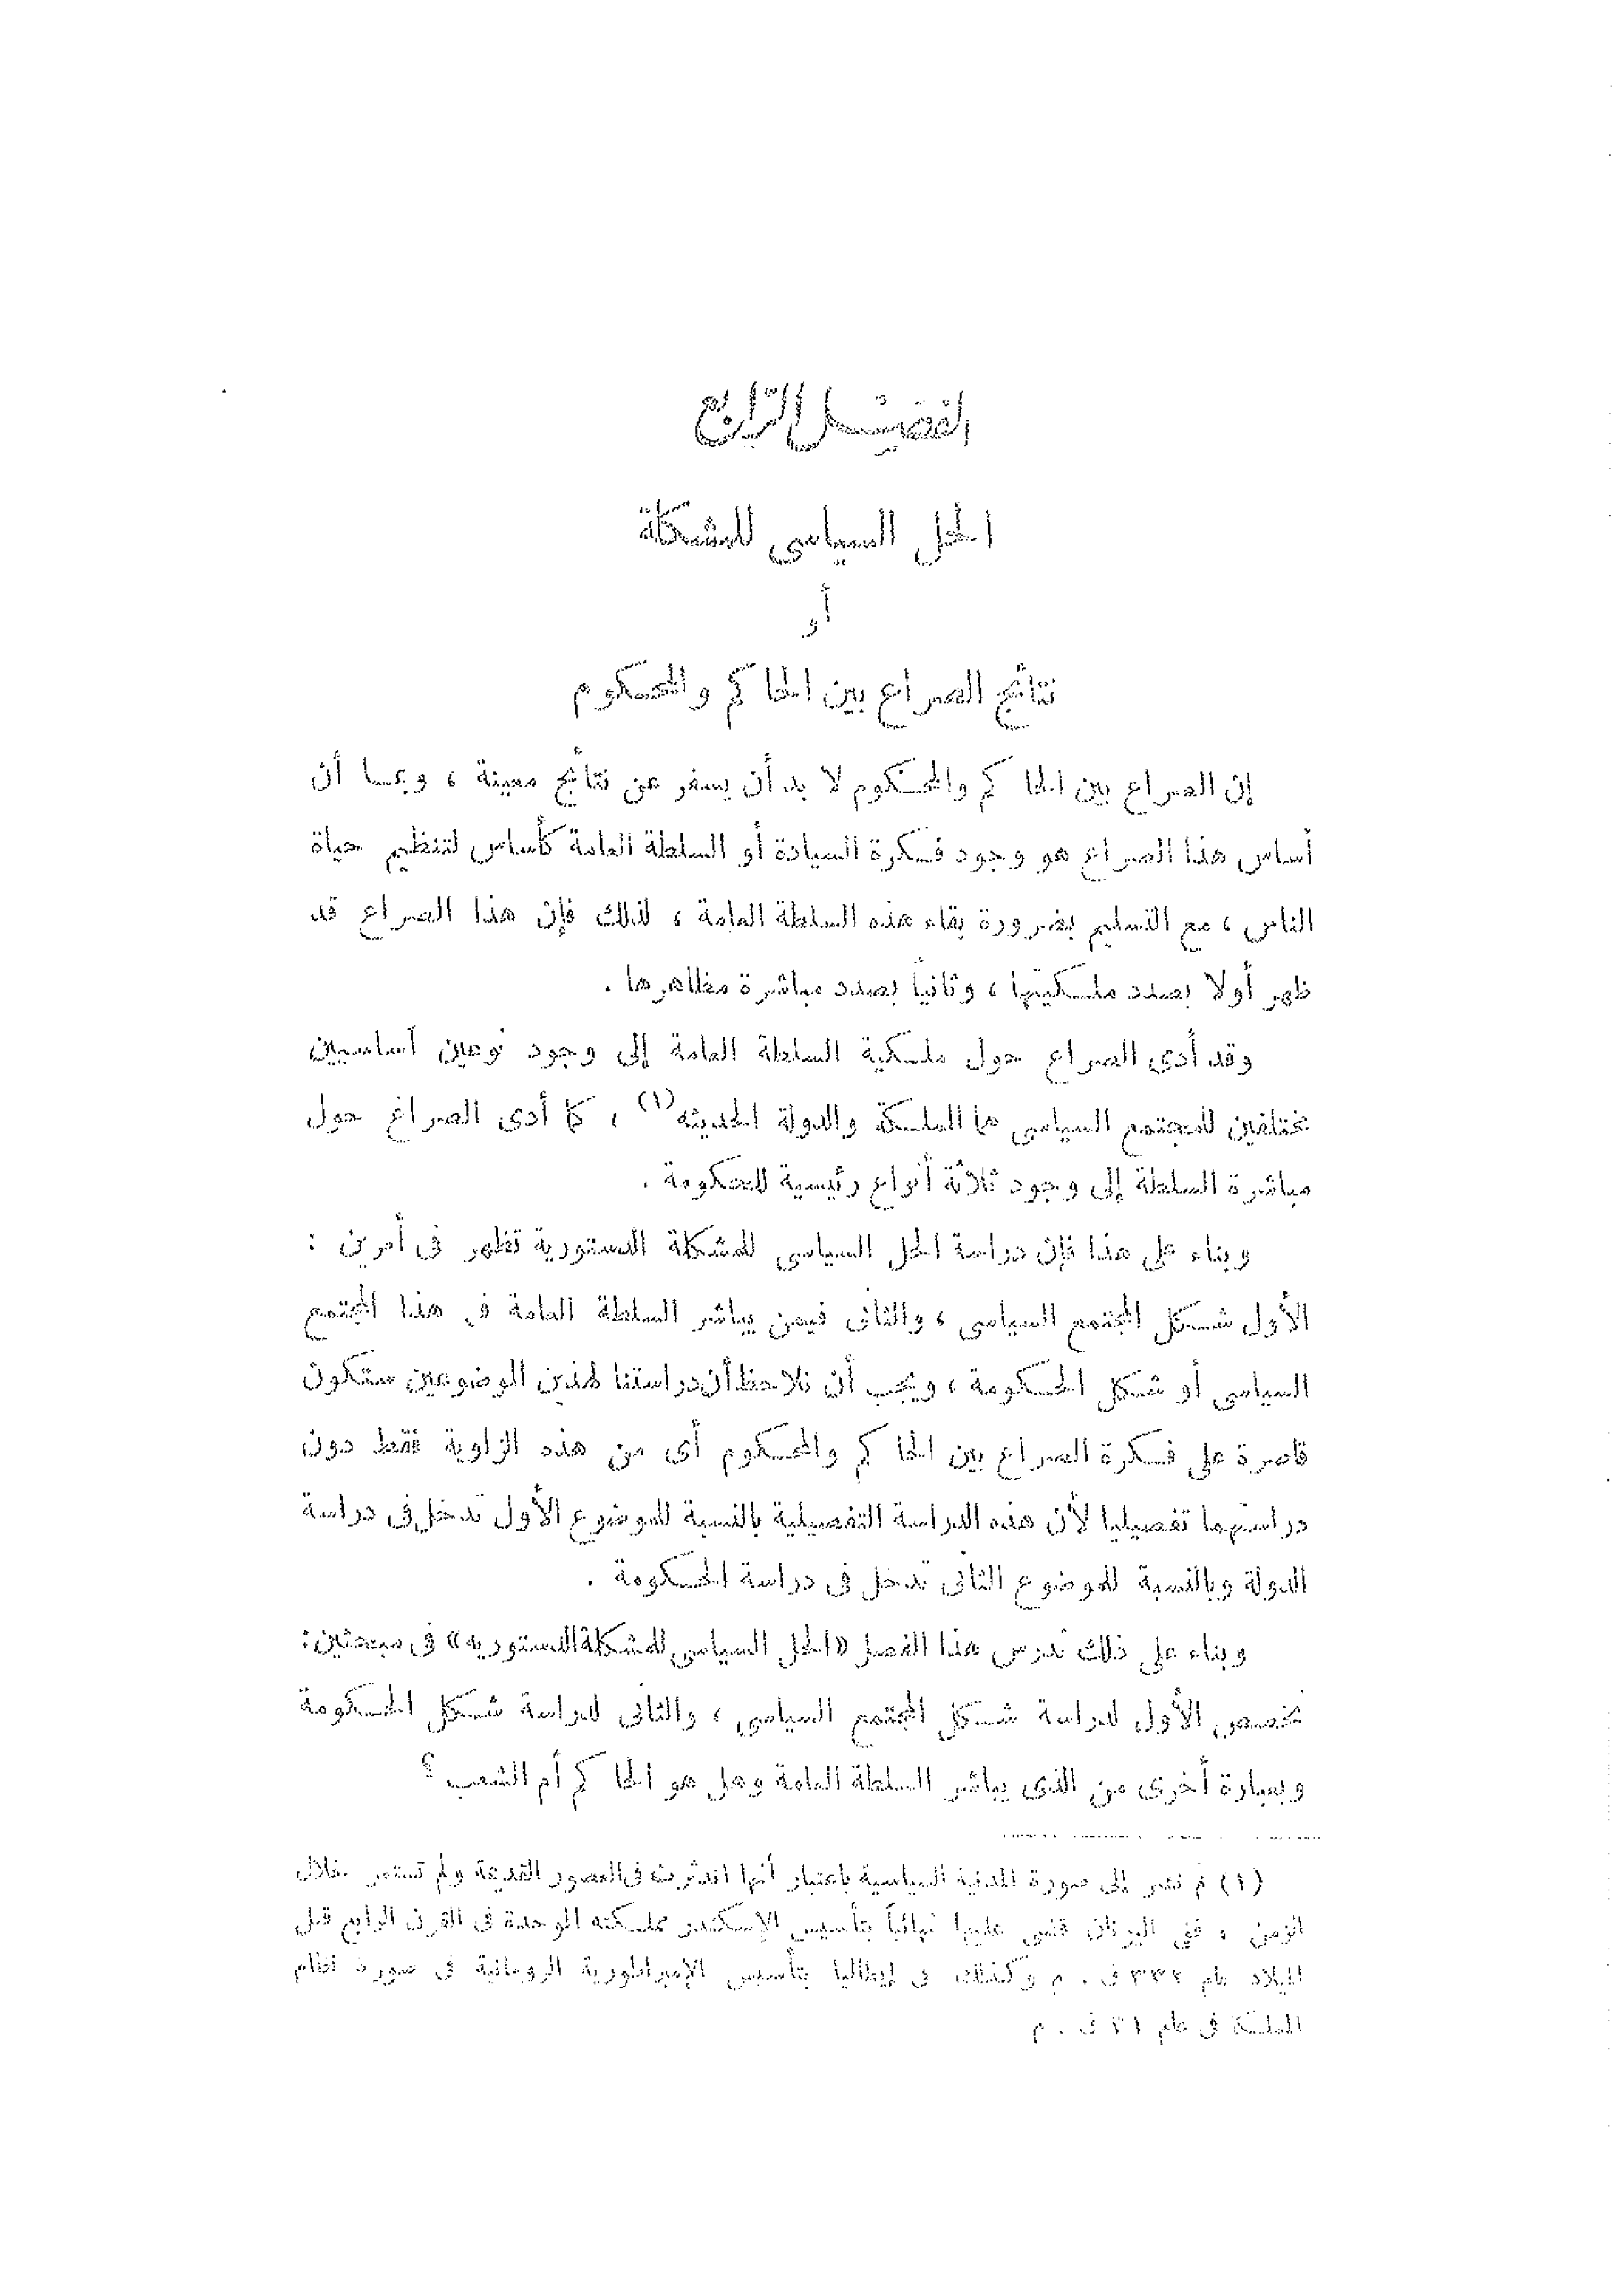 الفصل الرابع
الحل السياسى للمشكلة
أو
نتائج الصراع بين الحاكم والمحكوم
إن الصراع بين الحاكم والمحكوم لا بد أن يسفر عن نتائج معينة ، وبما أن
أساس هذا الصراع هو وجود فكرة السيادة أو السلطة العامة كأساس لتنظيم حياة
الناس ، مع التسليم بضرورة بقاء هذه السلطة العامة ، لذلك فإن هذا الصراع قد
ظهر أولا بصدد ملكيتها ، وثانياً بصدد مباشرة مظاهرها .
وقد أدى الصراع حول ملكية السلطة العامة إلى وجود نوعين أساسيين
مختلفين للمجتمع السياسى هما المملكة والدولة الحديثه (١) ، كما أدى الصراع حول
مباشرة السلطة إلى وجود ثلاثة أنواع رئيسية للحكومة .
وبناء على هذا فإن دراسة الحل السياسى للمشكلة الدستورية تظهر فى أمرين :
الأول شكل المجتمع السياسى ، والثانى فيمن يباشر السلطة العامة فى هذا المجتمع
السياسى أو شكل الحكومة ، ويجب أن نلاحظ أن دراستنا لهذين الموضوعين ستكون
قاصرة على فكرة الصراع بين الحاكم والمحكوم أى من هذه الزاوية فقط دون
دراستهما تفصيليا لأن هذه الدراسة التفصيلية بالنسبة للموضوع الأول تدخل فى دراسة
الدولة وبالنسبة للموضوع الثانى تدخل فى دراسة الحكومة .
وبناء على ذلك ندرس هذا الفصل «الحل السياسى للمشكلة الدستوريه» فى مبحثين :
نخصص الأول لدراسة شكل المجتمع السياسى ، والثانى لدراسة شكل الحكومة
وبعبارة أخرى من الذى يباشر السلطة العامة وهل هو الحاكم أم الشعب ؟
(١) لم نشر إلى صورة المدنية السياسية باعتبار أنها اندثرت فى العصور القديمة ولم تستمر خلال
الزمن ، ففى اليونان قضى عليها نهائياً بتأسيس الإسكندر مملكته الموحدة فى القرن الرابع قبل
الميلاد عام ق . م وكذلك فى إيطاليا بتأسيس الإمبراطورية الرومانية فى صورة نظام
المملكة فى عام ٣١ ق . م